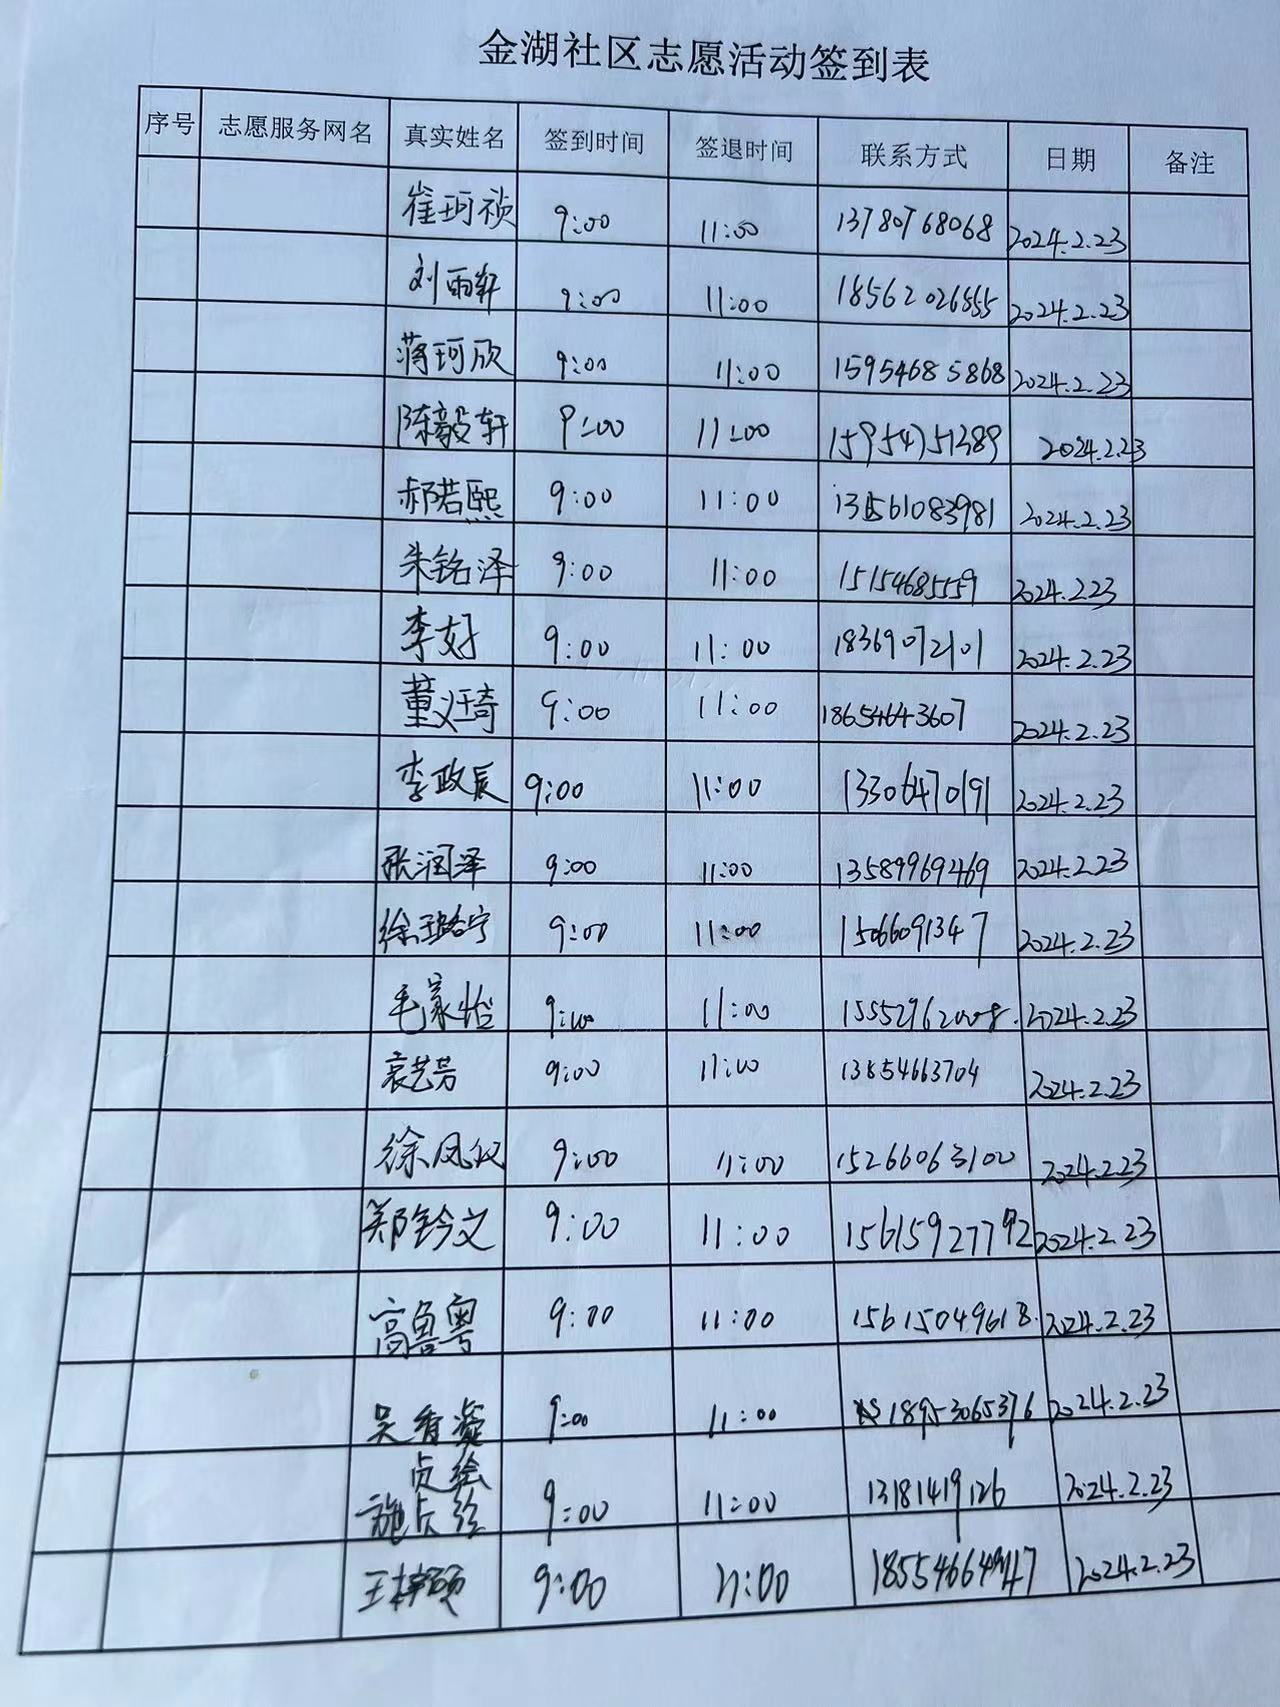 金湖社区志愿活动签到表
序号 志愿服务网名 真实姓名 签到时间 签退时间 联系方式 日期 备注
崔珂祯 9:00 11:00 13780768068 2024.2.23
刘雨轩 9:00 11:00 18562026855 2024.2.23
蒋珂欣 9:00 11:00 15954685868 2024.2.23
陈毅轩 9:00 11:00 15954751389 2024.2.23
郝若熙 9:00 11:00 2024.2.23
朱铭泽 9:00 11:00 15154685559 2024.2.23
李好 9:00 11:00 18369072101 2024.2.23
董义琦 9:00 11:00 18654643607 2024.2.23
李政辰 9:00 11:00 13306470191 2024.2.23
张润泽 9:00 11:00 13589969469 2024.2.23
徐璐宁 9:00 11:00 15066091347 2024.2.23
毛家怡 9:00 11:00 15552962008. 2024.2.23
袁艺芳 9:00 11:00 13854663704 2024.2.23
徐凤仪 9:00 11:00 15266063100 2024.2.23
郑钤文 9:00 11:00 15615927792 2024.2.23
高鲁粤 9:00 11:00 15615049618. 2024.2.23
吴香凝 9:00 11:00 18953065376 2024.2.23
贞绘
施贞绘 9:00 11:00 13181419126 2024.2.23
王梓硕 9:00 11:00 2024.2.23